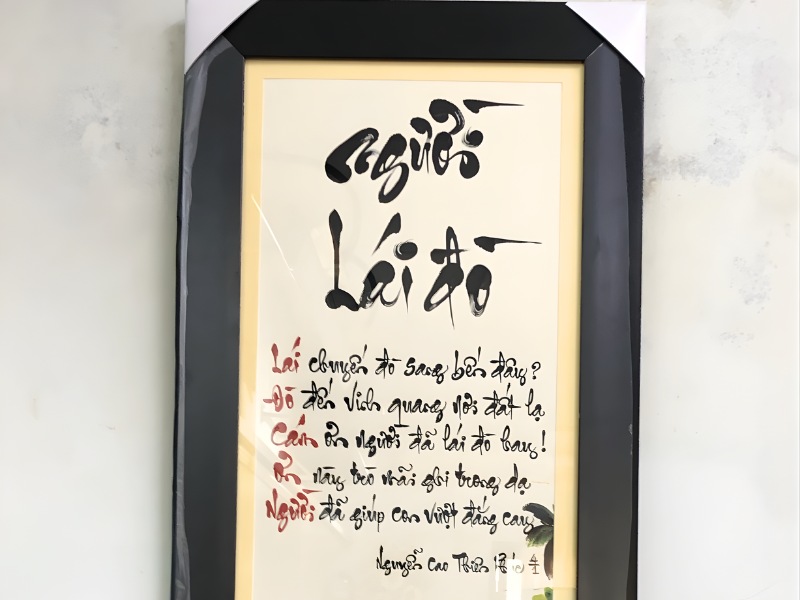 Người
Lái đò
Lái chuyến đò sang bến đây?
Đò đến vinh quang nơi đất lạ
Cám ơn người đã lái đò hay!
Ơn này trò mãi ghi trong dạ
Người đã giúp con vượt đắng cay
Nguyễn Cao Thiên